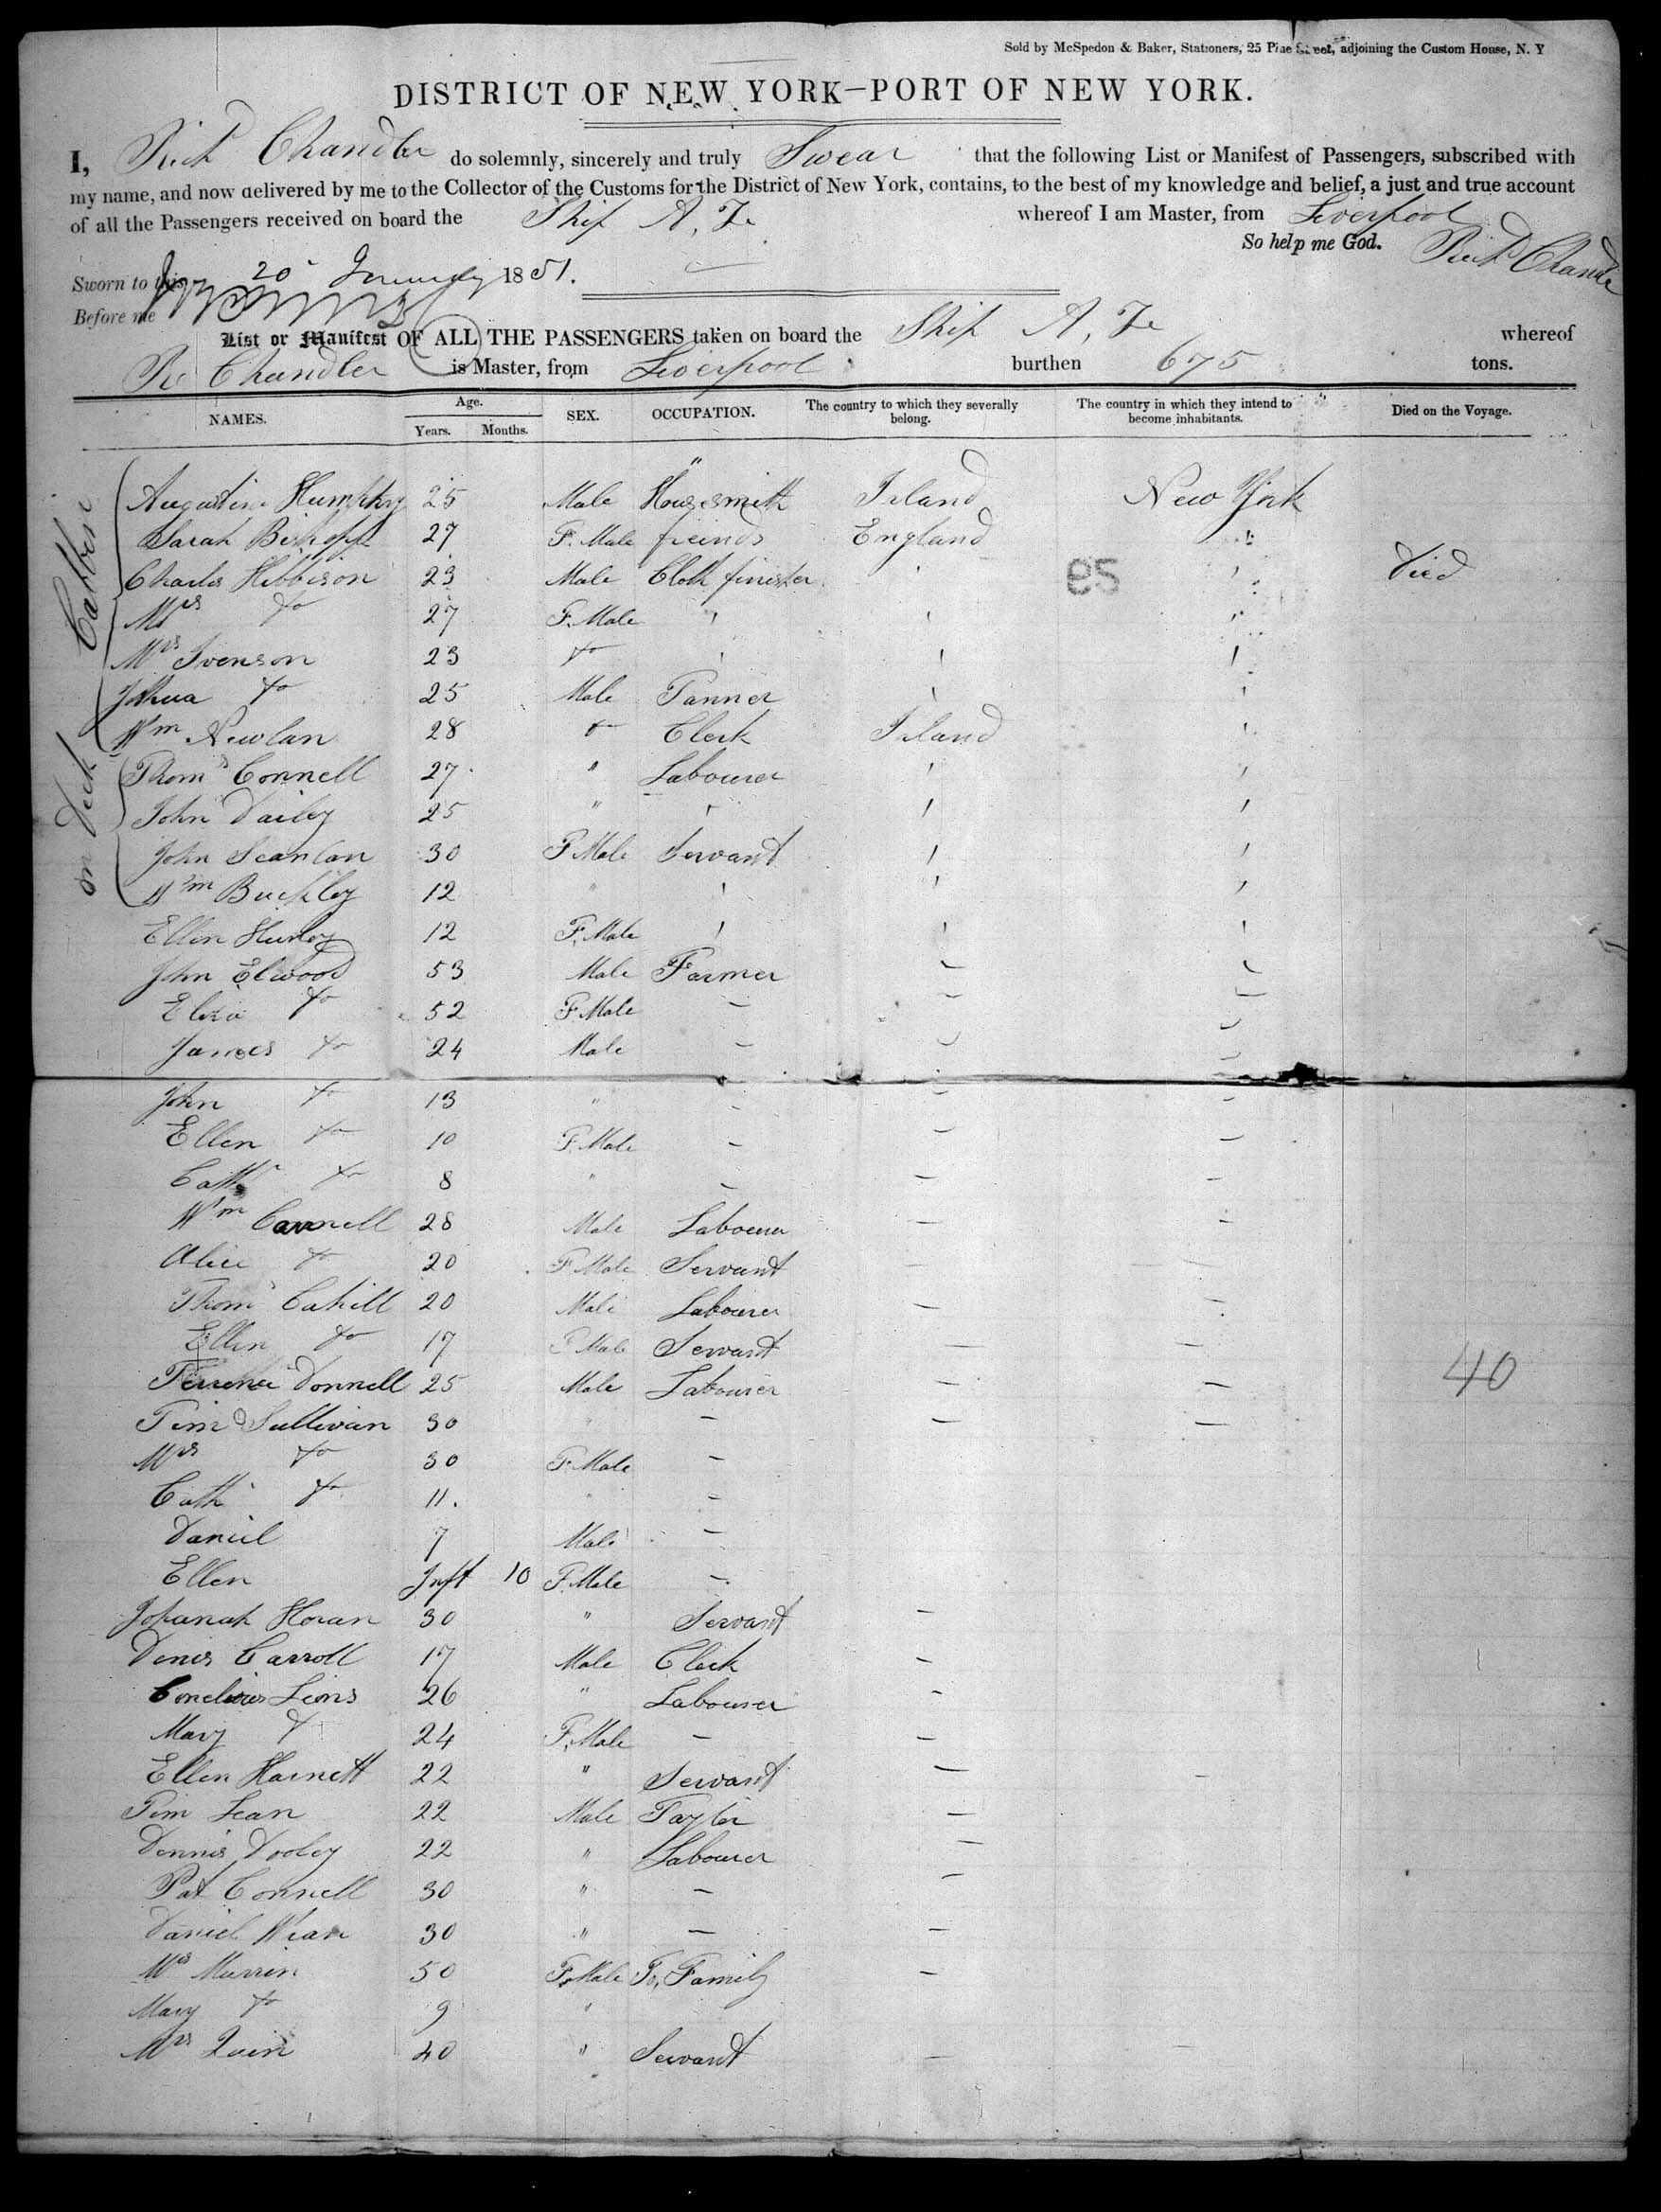 Sold by McSpedon & Baker, Stationers, 25 Pine Street, adjoining the Custom House, N. Y
DISTRICT OF NEW YORK—PORT OF NEW YORK.
I, Richd Chandler do solemnly, sincerely and truly Swear that the following List or Manifest of Passengers, subscribed with
my name, and now delivered by me to the Collector of the Customs for the District of New York, contains, to the best of my knowledge and belief, a just and true account
of all the Passengers received on board the Ship A. Z. whereof I am Master, from Liverpool
So help me God. Richd Chandler
Sworn to this 20 January 1851.
Before me
List or Manifest OF ALL THE PASSENGERS taken on board the Ship A. Z. whereof
R Chandler is Master, from Liverpool burthen 675 tons.
NAMES. Age. Years. Months. SEX. OCCUPATION. The country to which they severally belong. The country in which they intend to become inhabitants. Died on the Voyage.
on Deck Cabbin
Augustin Humphry 25 Male " Ireland New York
Sarah Bishopp 27 F. Male freinds England "
Charles Hibbison 23 Male Cloth finisher ' 95 ' Died
Mrs do 27 F. Male ' ' '
Mrs Svenson 23 do ' ' '
Joshua do 25 Male Tanner ' '
Wm Newlan 28 do Clerk Ireland '
Thoms Connell 27 " Labourer ' '
John Dailey 25 " ' ' '
John Scanlan 30 F Male Servant ' '
Wm Buckley 12 " ' ' '
Ellen Hurley 12 F. Male ' ' '
John Elwood 53 Male Farmer - -
Eliza do 52 F Male - - -
James do 24 Male - - -
John do 13 " - - -
Ellen do 10 F. Male - - -
Cathe do 8 " - - -
Wm Connell 28 Male Labourer - -
Alice do 20 F Male Servant - -
Thoms Cahill 20 Male Labourer - -
Ellen do 17 F Male Servant - -
Terrence Donnell 25 Male Labourer - - 40
Tim O Sullivan 30 " - - -
Mrs do 30 F. Male -
Cath do 11. " -
Daniel 7 Male -
Ellen Inft 10 F. Male -
Johanah Horan 30 " Servant -
Denis Carroll 17 Male Clerk -
Cornelious Lions 26 " Labourer -
Mary do 24 F. Male - -
Ellen Harnett 22 " Servant - -
Tim Lean 22 Male Taylor -
Dennis Dooley 22 " Labourer -
Pat Connell 30 " - -
Daniel 30 " - -
Mrs Murrin 50 F. Male To, Family -
Mary do 9 "
Mrs Quin 40 " Servant - -